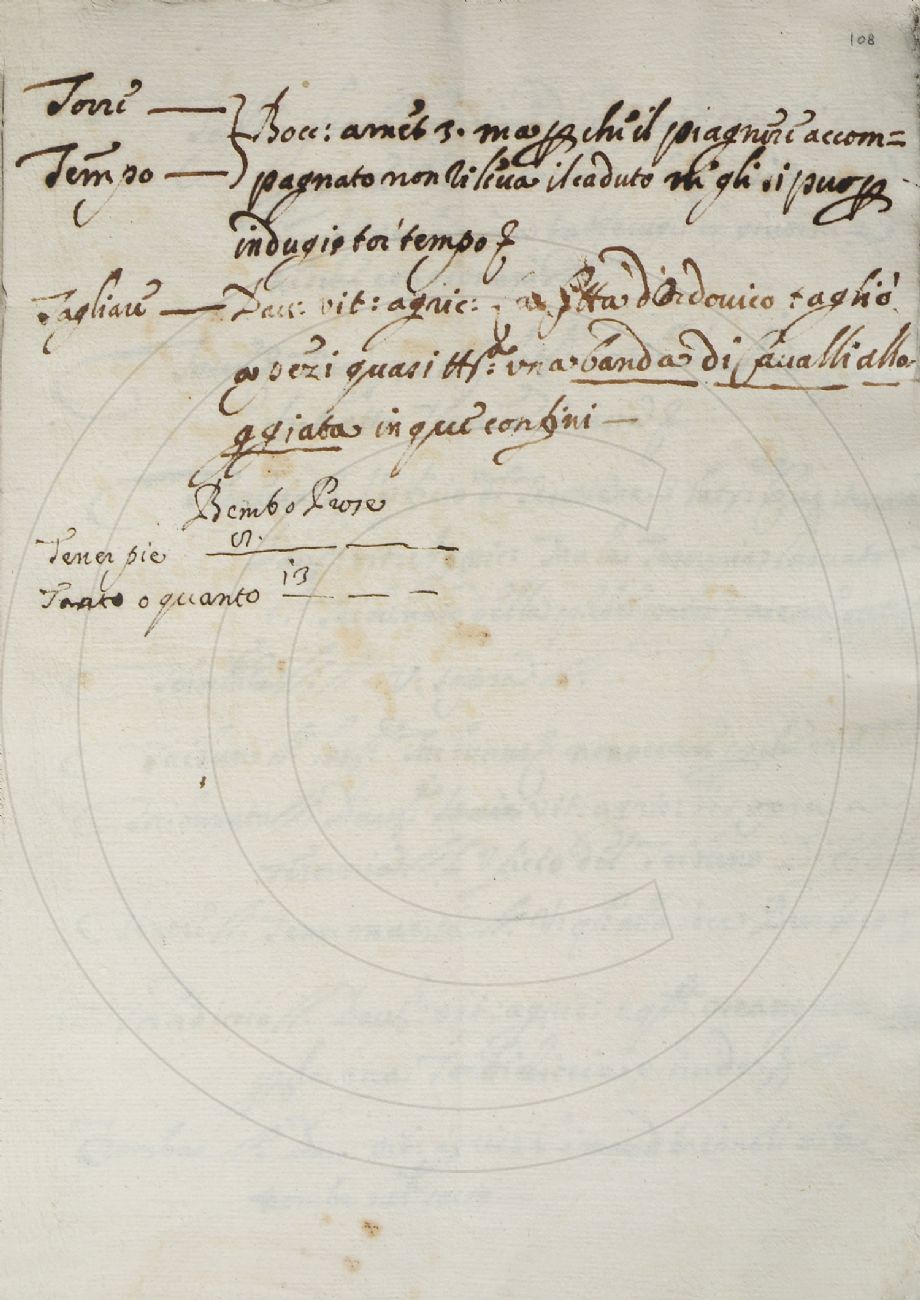 108
Torre
Bocc: amet 3. ma p che il piagnere accom=
Tempo
pagnato non rileva il caduto ne gli si puo p
indugio tor tempo
Tagliare Dav: vit: agric: d'Ordovico tagliò
a pezzi quasi tta: una banda di Cavalli allo
ggiata in que confini
Bembo Prose
Tener pie 8.
Tanto o quanto 13